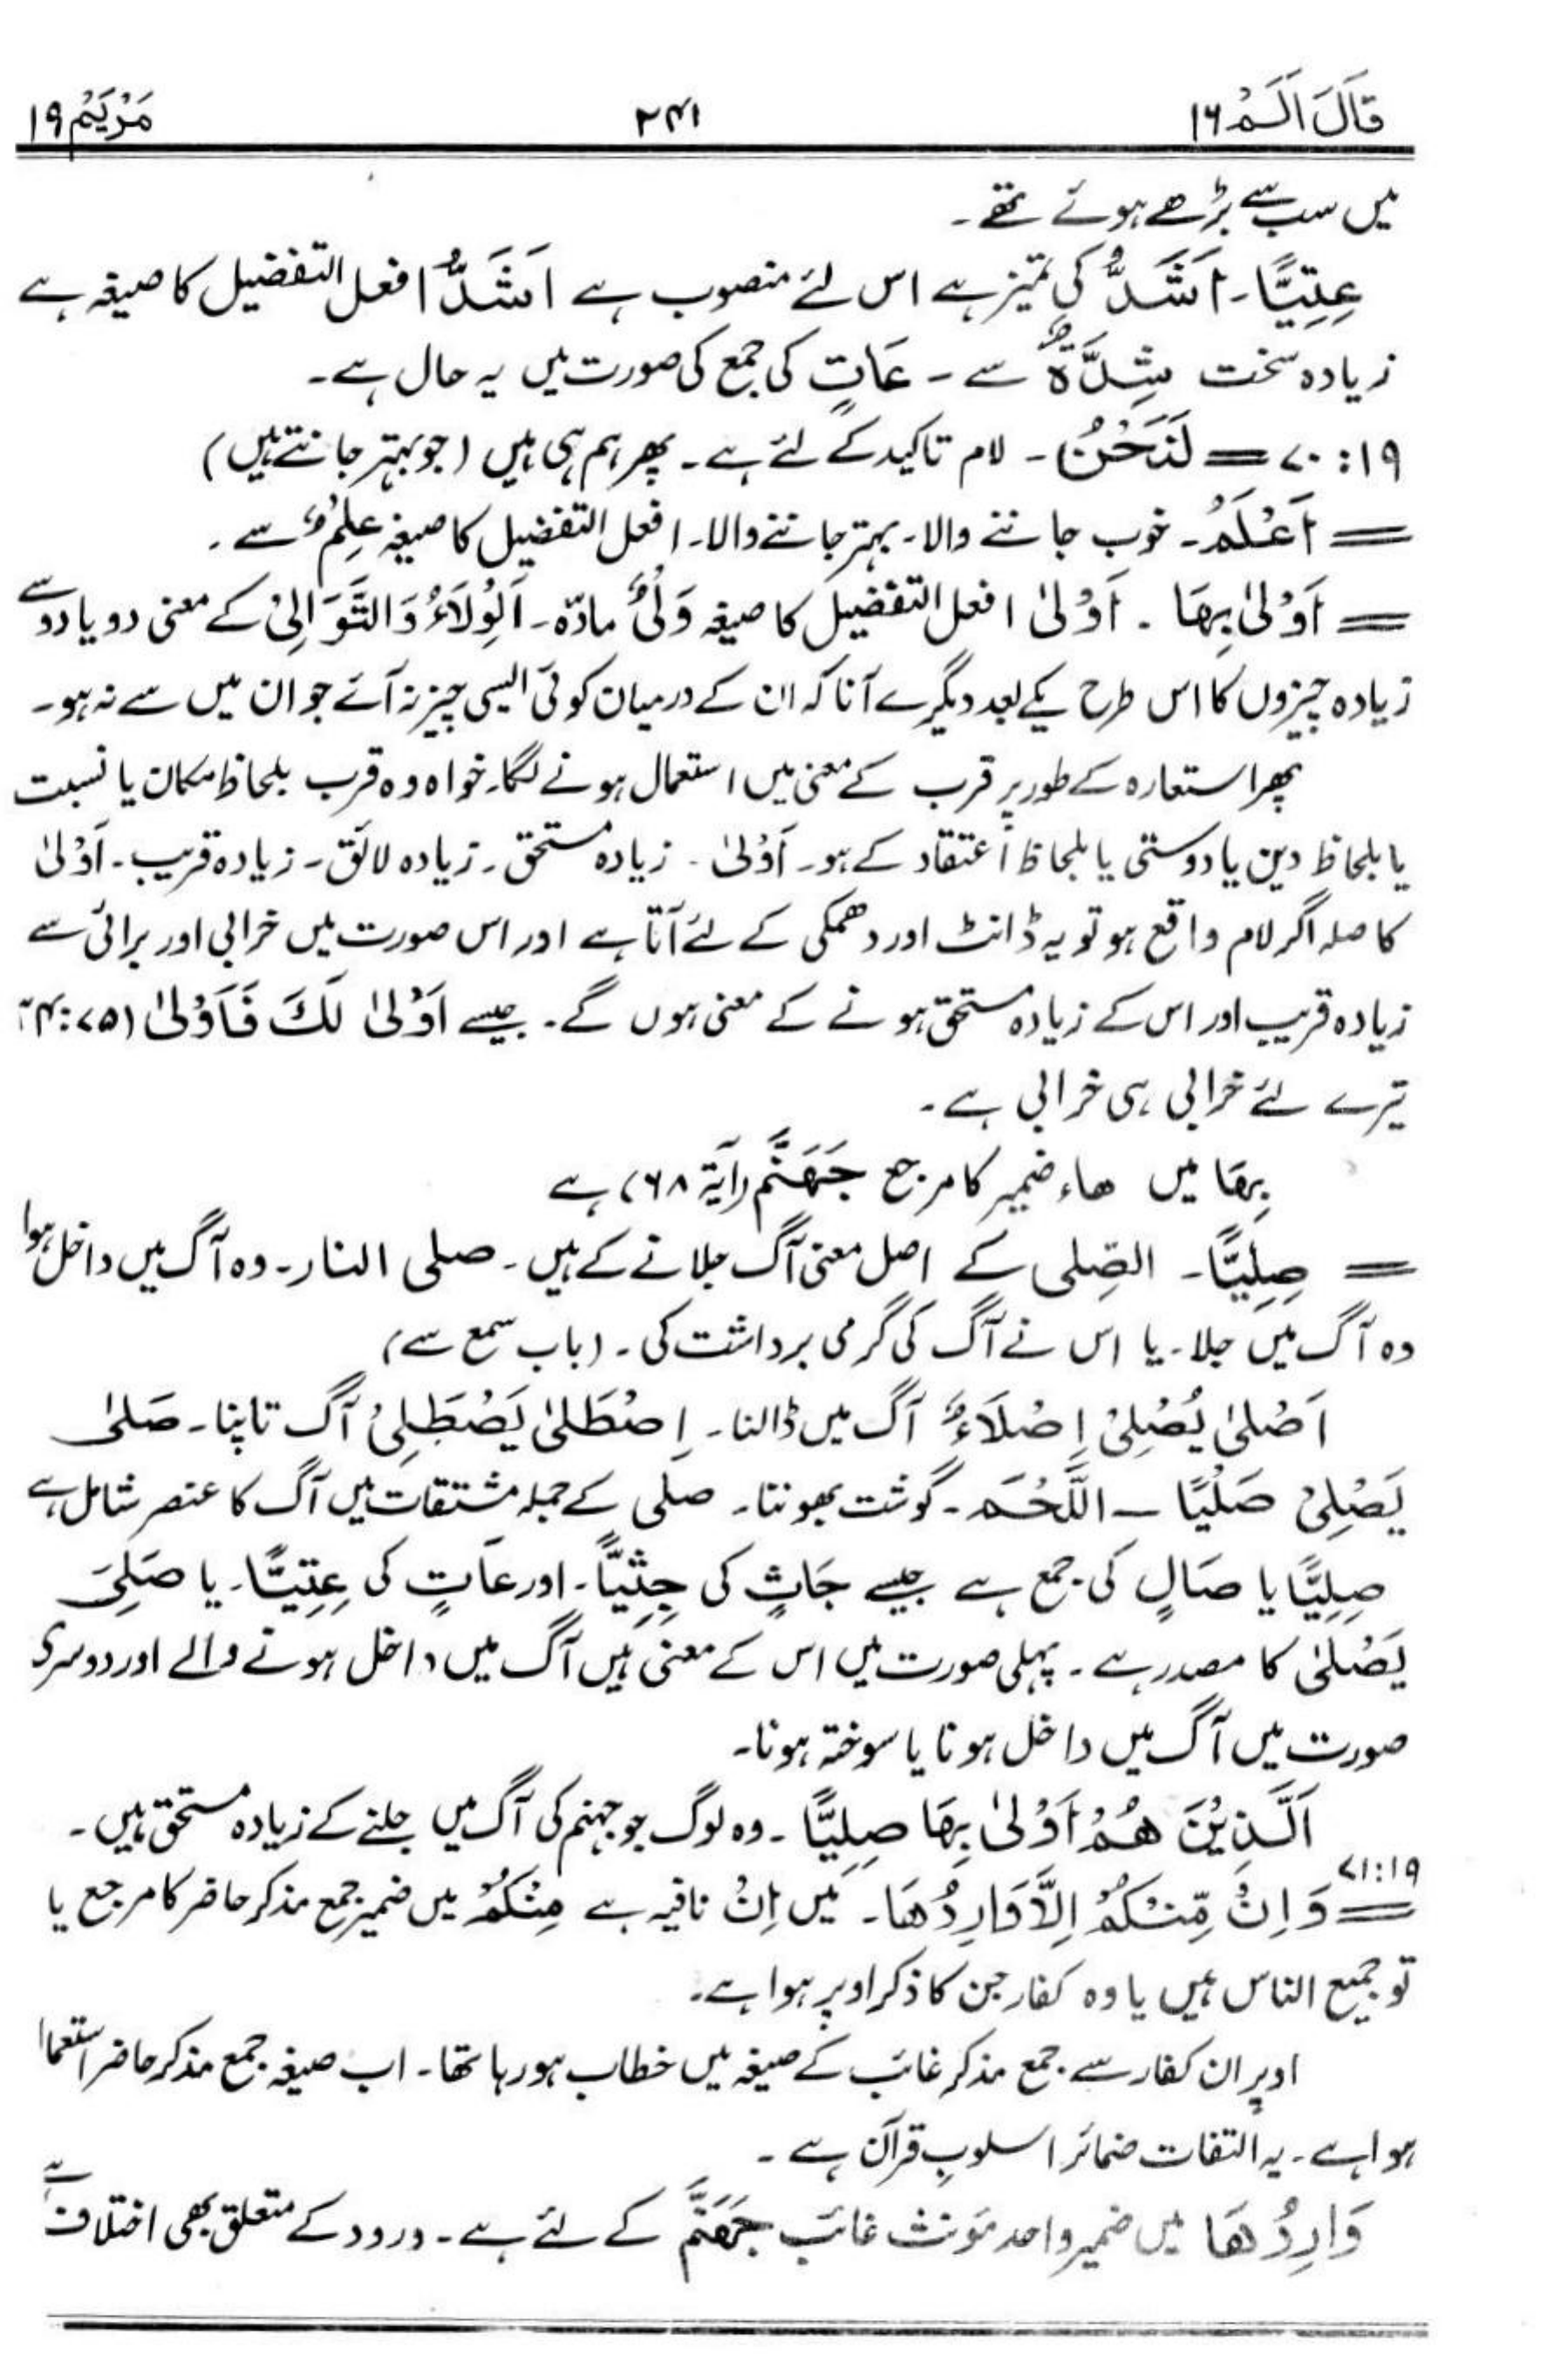 قَالَ اَلَمْ ١٦ ٢٤١ مَرْيَمْ ١٩
میں سب سے بڑھے ہوئے تھے۔
عِتِیًّا۔ اَشَدُّ کی تمیز ہے اس لئے منصوب ہے اَشَدُّ افعل التفضیل کا صیغہ ہے
زیادہ سخت شِدَّةٌ سے۔ عَاتٍ کی جمع کی صورت میں یہ حال ہے۔
١٩:٧٠ = لَنَحْنُ۔ لام تاکید کے لئے ہے۔ پھر ہم ہی ہیں (جو بہتر جانتے ہیں)
= اَعْلَمُ۔ خوب جاننے والا۔ بہتر جاننے والا۔ افعل التفضیل کا صیغہ عِلْمٌ سے۔
= اَوْلٰی بِهَا۔ اَوْلٰی افعل التفضیل کا صیغہ وَلْیٌ مادّہ۔ اَلْوِلَاءُ وَالتَّوَالِیْ کے معنی دو یا دو سے
زیادہ چیزوں کا اس طرح یکے بعد دیگرے آنا کہ ان کے درمیان کوئی ایسی چیز نہ آئے جو ان میں سے نہ ہو۔
پھر استعارہ کے طور پر قرب کے معنی میں استعمال ہونے لگا۔ خواہ وہ قرب بلحاظ مکان یا نسبت
یا بلحاظ دین یا دوستی یا بلحاظ اعتقاد کے ہو۔ اَوْلٰی۔ زیادہ مستحق۔ زیادہ لائق۔ زیادہ قریب۔ اَوْلٰی
کا صلہ اگر لام واقع ہو تو یہ ڈانٹ اور دھمکی کے لئے آتا ہے اور اس صورت میں خرابی اور برائی سے
زیادہ قریب اور اس کے زیادہ مستحق ہونے کے معنی ہوں گے۔ جیسے اَوْلٰی لَكَ فَاَوْلٰی (٧٥:٣٤
تیرے لئے خرابی ہی خرابی ہے۔
بِهَا میں ھاء ضمیر کا مرجع جَهَنَّم (آیۃ ٦٨) ہے
= صِلِیًّا۔ الصِّلی کے اصل معنی آگ جلانے کے ہیں۔ صلی النار۔ وہ آگ میں داخل ہوا
وہ آگ میں جلا۔ یا اس نے آگ کی گرمی برداشت کی۔ (باب سمع سے)
اَصْلٰی یُصْلِیْ اِصْلَاءٌ آگ میں ڈالنا۔ اِصْطَلٰی یَصْطَلِیْ آگ تاپنا۔ صَلٰی
یَصْلِیْ صَلْیًا ــ اللَّحْمَ۔ گوشت بھوننا۔ صلی کے جملہ مشتقات میں آگ کا عنصر شامل ہے
صِلِیًّا یا صَالٍ کی جمع ہے جیسے جَاثٍ کی جِثِیًّا۔ اور عَاتٍ کی عِتِیًّا۔ یا صَلِیَ
یَصْلٰی کا مصدر ہے۔ پہلی صورت میں اس کے معنی ہیں آگ میں داخل ہونے والے اور دوسری
صورت میں آگ میں داخل ہونا یا سوختہ ہونا۔
اَلَّذِیْنَ هُمْ اَوْلٰی بِهَا صِلِیًّا۔ وہ لوگ جو جہنم کی آگ میں جلنے کے زیادہ مستحق ہیں۔
١٩:٧١
= وَاِنْ مِّنْكُمْ اِلَّا وَارِدُهَا۔ میں اِنْ نافیہ ہے مِنْكُمْ میں ضمیر جمع مذکر حاضر کا مرجع یا
تو جمیع الناس ہیں یا وہ کفار جن کا ذکر اوپر ہوا ہے۔
اوپر ان کفار سے جمع مذکر غائب کے صیغہ میں خطاب ہو رہا تھا۔ اب صیغہ جمع مذکر حاضر استعما
ہوا ہے۔ یہ التفات ضمائر اسلوبِ قرآن ہے۔
وَارِدُهَا میں ضمیر واحد مؤنث غائب جَهَنَّم کے لئے ہے۔ ورود کے متعلق بھی اختلاف ہے